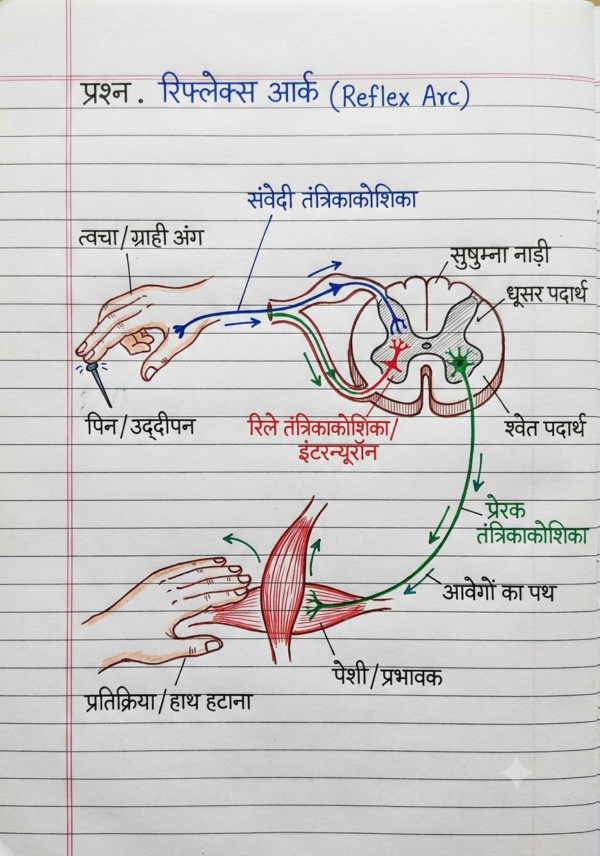 प्रश्न. रिफ्लेक्स आर्क (Reflex Arc)
संवेदी तंत्रिकाकोशिका
त्वचा/ग्राही अंग
सुषुम्ना नाड़ी
धूसर पदार्थ
पिन/उद्दीपन
रिले तंत्रिकाकोशिका/
इंटरन्यूरॉन
श्वेत पदार्थ
प्रेरक
तंत्रिकाकोशिका
आवेगों का पथ
पेशी/प्रभावक
प्रतिक्रिया/हाथ हटाना